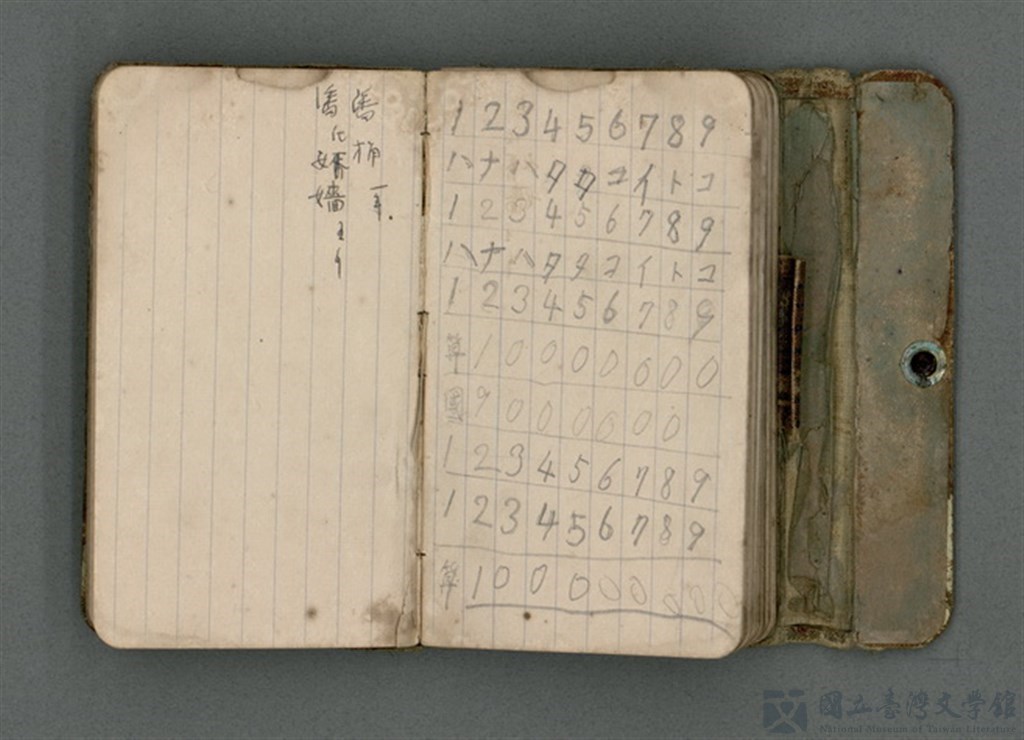 1 2 3 4 5 6 7 8 9
ハ ナ ハ タ タ コ イ ト コ
1 2 3 4 5 6 7 8 9
ハ ナ ハ タ タ コ イ ト コ
1 2 3 4 5 6 7 8 9
算 1 0 0 0 0 0 0 0
國 9 0 0 0 0 0 0
1 2 3 4 5 6 7 8 9
1 2 3 4 5 6 7 8 9
算 1 0 0 0 0 0 0 0 0
國立臺灣文学館
National Museum of Taiwan Literature